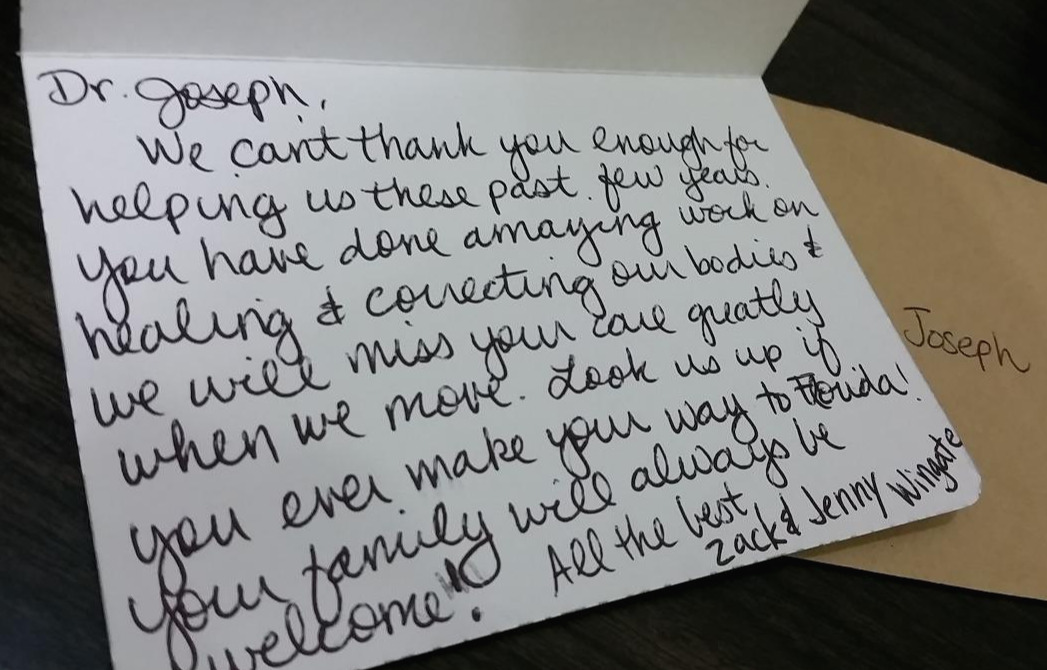 Dr. Joseph,
We can't thank you enough for
helping us these past few years.
You have done amazing work on
healing & correcting our bodies &
we will miss your care greatly
when we move. Look us up if
you ever make your way to Florida!
Your family will always be
welcome!
All the best,
Zack & Jenny Wingate
Joseph